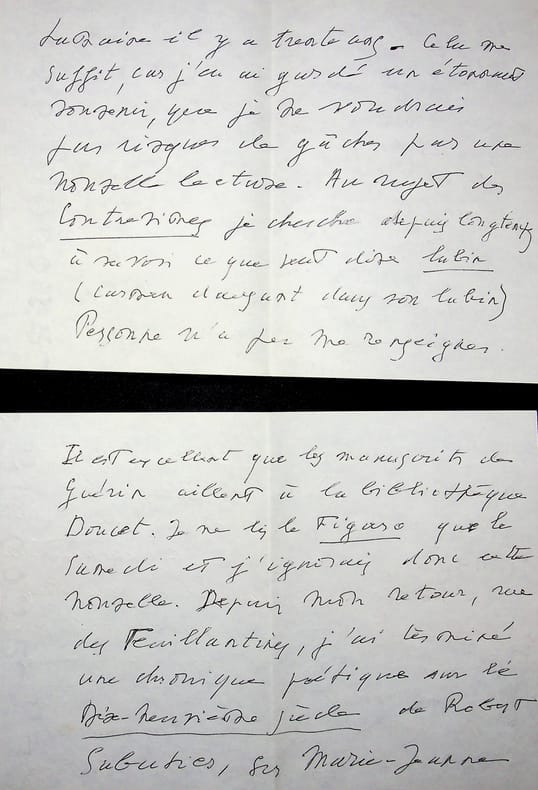 il y a trente ans. Cela me
suffit, car j'en ai gardé un étonnant
souvenir, que je ne voudrais
pas risquer de gâcher par une
nouvelle lecture. Au sujet des
Contrerimes je cherche depuis longtemps
à savoir ce que veut dire lubin
(Carsen dansant dans son lubin)
Personne n'a pu me renseigner.
Il est excellent que les manuscrits de
Guérin aillent à la bibliothèque
Doucet. Je ne lis le Figaro que le
Samedi et j'ignorais donc cette
nouvelle. Depuis mon retour, rue
des Feuillantines, j'ai terminé
une chronique poétique sur le
Dix-neuvième siècle de Robert
Sabatier, sur Marie-Jeanne